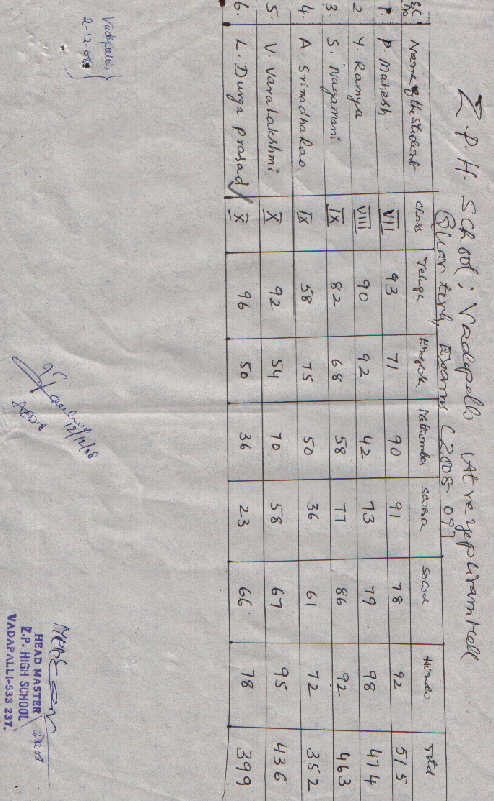 Z.P.H. School; Vadapalli (Atreyapuram Mdl
Quarterly Exams (2008-09)
Sl. No Name of the student Class Telugu English Mathematics Science Social Hindi Total
1. P. Mahesh VII 93 71 90 91 78 92 515
2 Y. Ramya VIII 90 92 42 73 79 98 474
3 S. Nagamani IX 82 68 58 77 86 92 463
4. A Srimadharao IX 58 75 50 36 61 72 352
5. V. Varalakshmi X 92 54 70 58 67 95 436
6 L. Durga Prasad X 96 50 36 23 66 78 399
Vadapalli
2-12-08
12/12/08
HEAD MASTER
Z.P. HIGH SCHOOL
VADAPALLI-533 237.